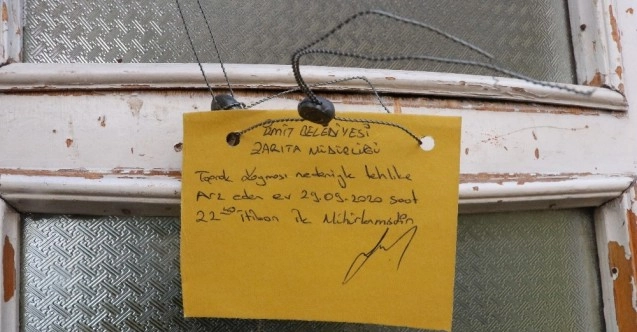 İZMİT BELEDİYESİ
ZABITA MÜDÜRLÜĞÜ
Toprak kayması nedeniyle tehlike
Arz eden ev 29.09.2020 saat
22⁴⁰ itibari ile Mühürlenmiştir